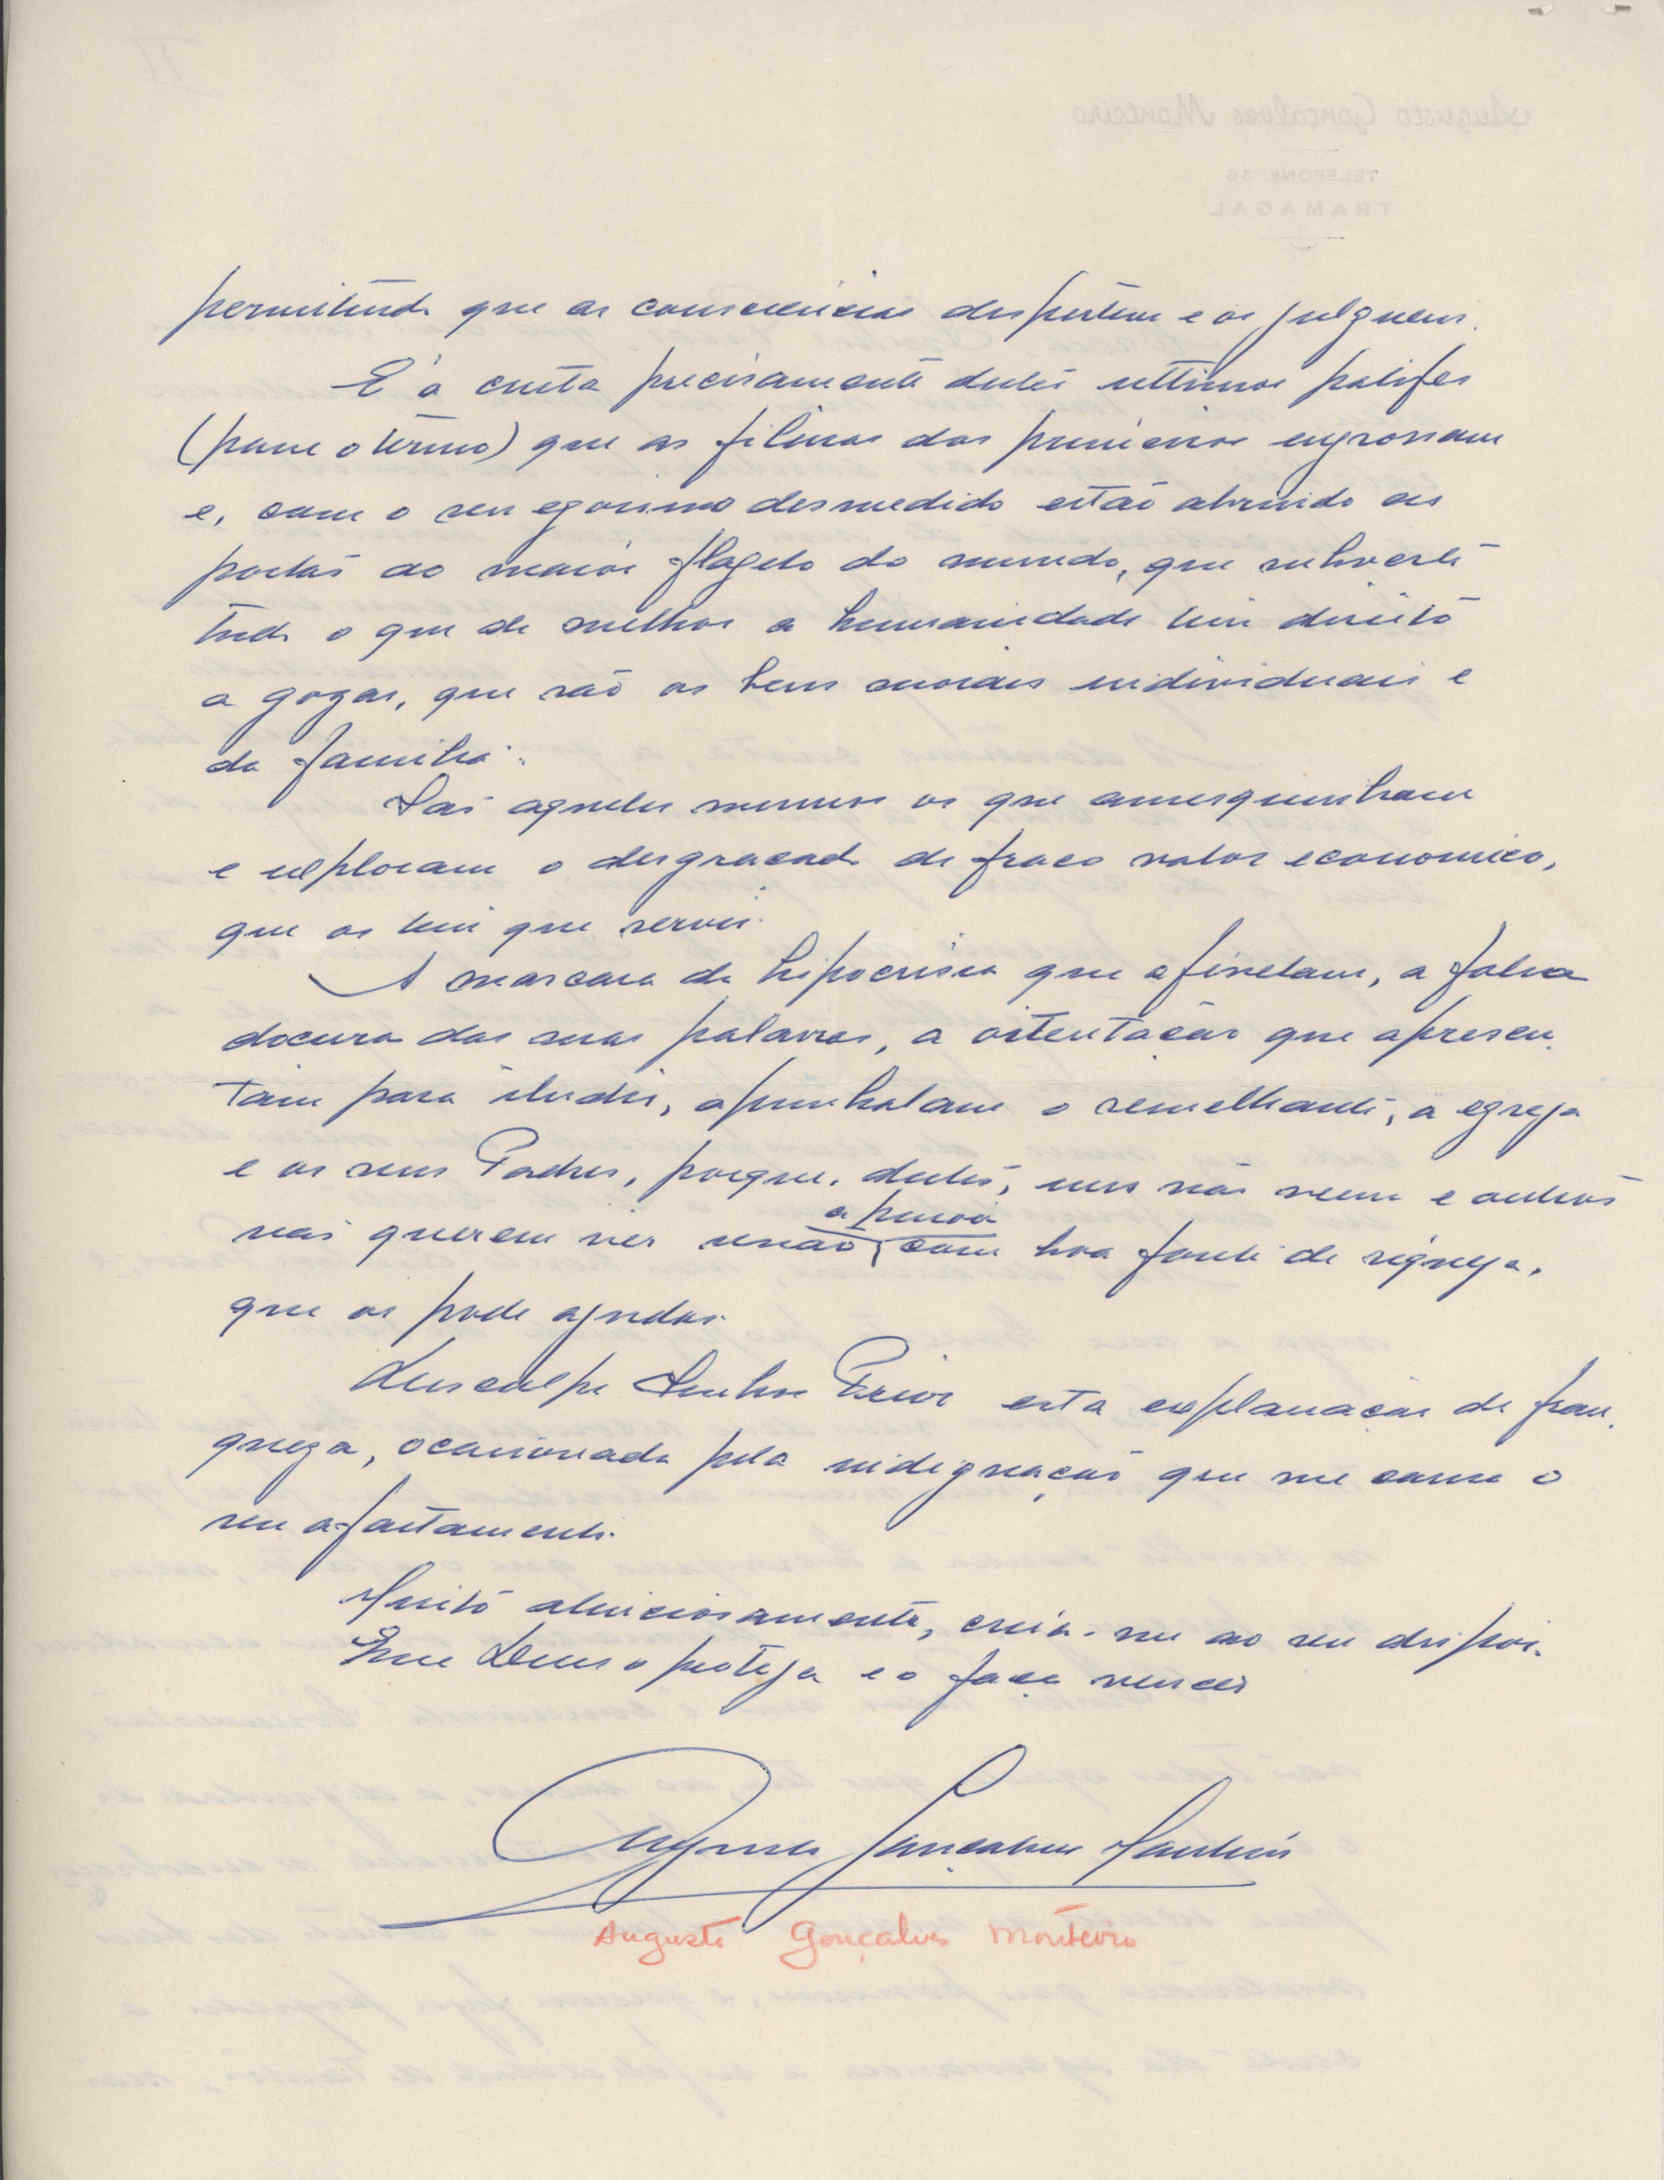 permitindo que as consciencias despertem e os julguem.
E' à custa precisamente destes ultimos patifes
(passe o termo) que as fileiras dos primeiros engrossam
e, com o seu egoismo desmedido estão abrindo as
portas ao maior flagelo do mundo, que subverte
tudo o que de melhor a humanidade tem direito
a gozar, que são os bens morais individuais e
da familia.
São aqueles mesmos os que amesquinham
e exploram o desgraçado de fraco valor economico,
que os tem que servir.
A mascara da hipocrisia que afivelam, a falsa
doçura das suas palavras, a ostentação que apresen-
tam para iludir, apunhalam o semelhante, a egreja
e os seus Padres, porque, destes, uns não veem e outros
a pessoa
não querem ver senão, com boa fonte de riqueza,
que os pode ajudar.
Desculpe Senhor Prior esta explanação de fran-
queza, ocasionada pela indignação que me causa o
seu afastamento.
Muito atenciosamente, creia-me ao seu dispor.
Que Deus o proteja e o faça vencer
Augusto Gonçalves Monteiro
Augusto Gonçalves Monteiro